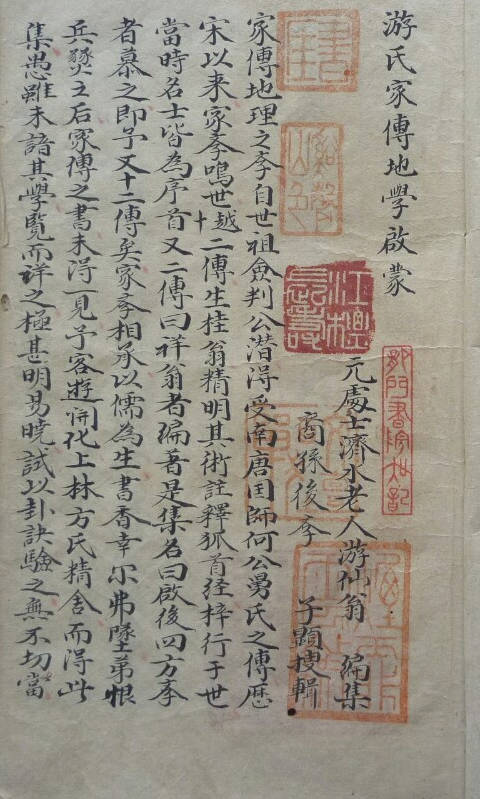 游氏家傳地學啟蒙
元處士濟水老人游仙翁　編集
裔孫後李　子顥搜輯
家傳地理之李自世祖僉判公潛得受南唐囯師何公勇氏之傳歷
宋以来家李鳴世越十二傳生桂翁精明其術註釋狐首经梓行于世
當時名士皆為序首又二傳曰祥翁者編著是集名曰啟後四方李
者慕之即予又十二傳矣家李相承以儒為生書香幸尔弗墜弟恨
兵燹之后家傳之書未得一見予客遊開化上林方氏精舍而得此
集愚雖未諳其學覧而詳之極甚明易曉試以卦訣驗之無不切當